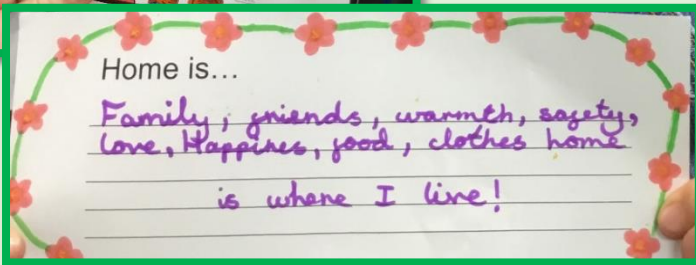 Home is...
Family, friends, warmth, safety,
love, Happines, food, clothes home
is where I live!